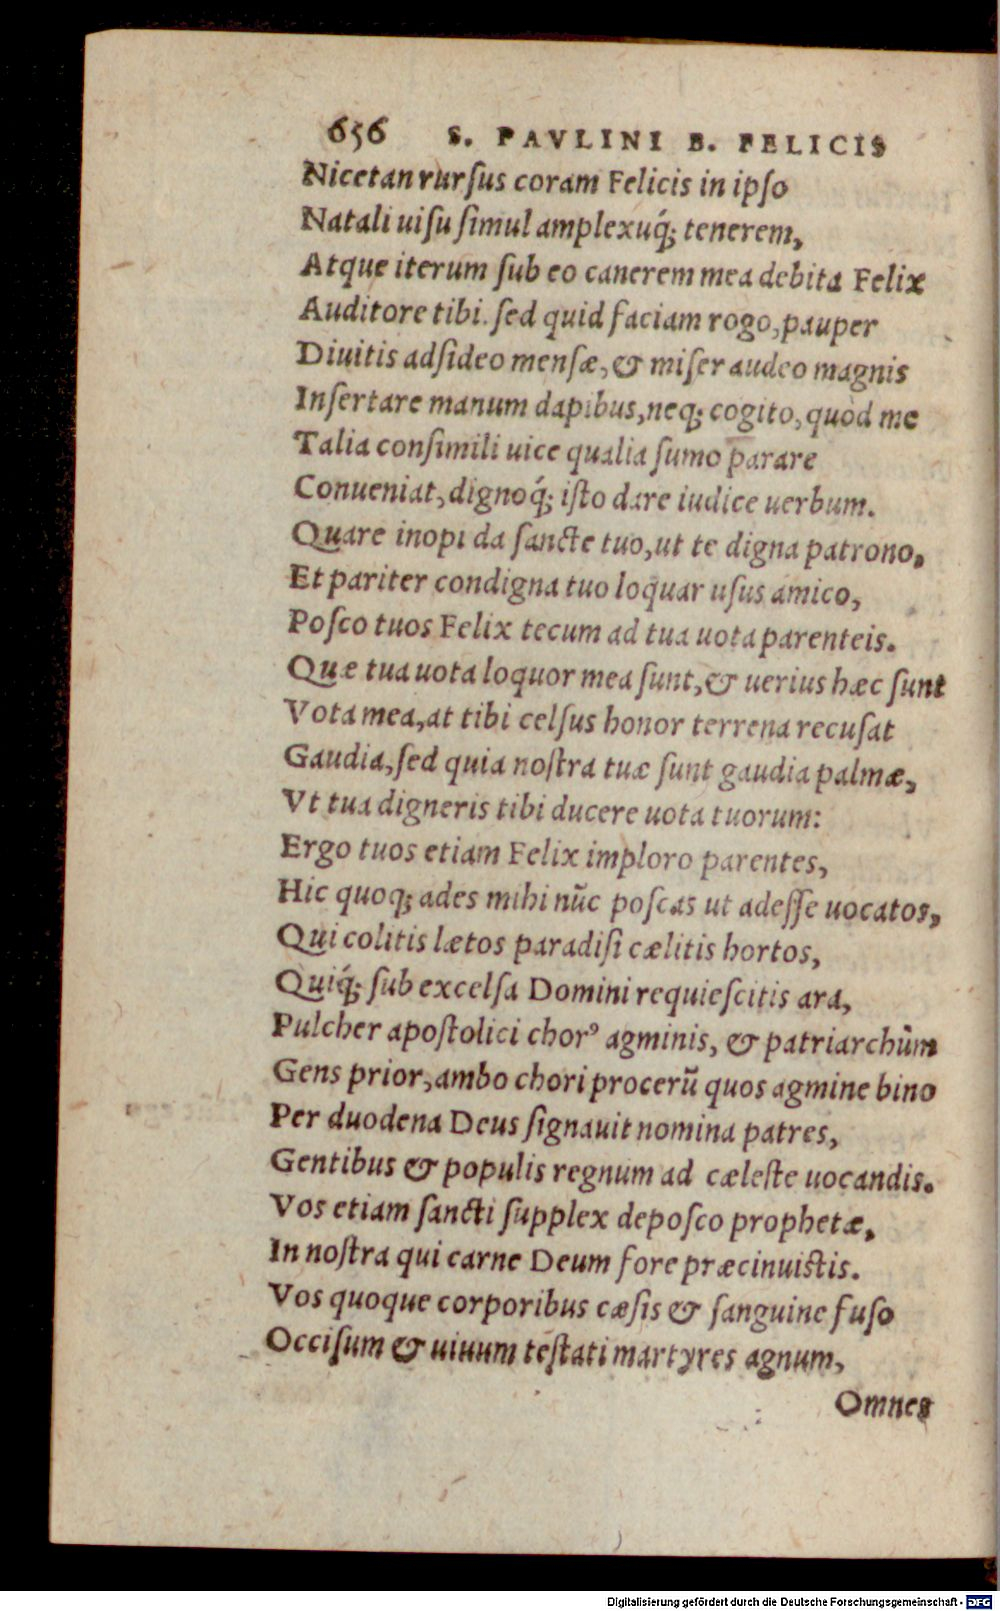 656 S. PAVLINI B. FELICIS
Nicetan rurſus coram Felicis in ipſo
Natali uiſu ſimul amplexuq́; tenerem,
Atque iterum ſub eo canerem mea debita Felix
Auditore tibi. ſed quid faciam rogo, pauper
Diuitis adſideo menſæ, & miſer audeo magnis
Inſertare manum dapibus, neq; cogito, quòd me
Talia conſimili uice qualia ſumo parare
Conueniat, dignoq́; iſto dare iudice uerbum.
Quare inopi da ſancte tuo, ut te digna patrono,
Et pariter condigna tuo loquar uſus amico,
Poſco tuos Felix tecum ad tua uota parenteis.
Quæ tua uota loquor mea ſunt, & uerius hæc ſunt
Vota mea, at tibi celſus honor terrena recuſat
Gaudia, ſed quia noſtra tuæ ſunt gaudia palmæ,
Vt tua digneris tibi ducere uota tuorum:
Ergo tuos etiam Felix imploro parentes,
Hic quoq; ades mihi nũc poſcas ut adeſſe uocatos,
Qui colitis lætos paradiſi cælitis hortos,
Quiq́; ſub excelſa Domini requieſcitis ara,
Pulcher apoſtolici chorꝰ agminis, & patriarchûm
Gens prior, ambo chori procerũ quos agmine bino
Per duodena Deus ſignauit nomina patres,
Gentibus & populis regnum ad cæleſte uocandis.
Vos etiam ſancti ſupplex depoſco prophetæ,
In noſtra qui carne Deum fore præcinuiſtis.
Vos quoque corporibus cæſis & ſanguine fuſo
Occiſum & uiuum teſtati martyres agnum,
Omnes
Digitalisierung gefördert durch die Deutsche Forschungsgemeinschaft - DFG